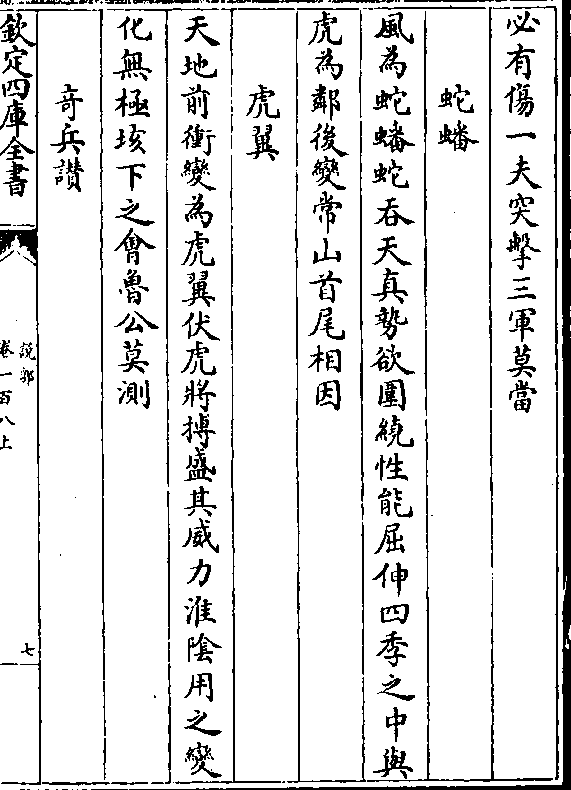 必有傷一夫突擊三軍莫當
蛇蟠
風為蛇蟠蛇吞天真勢欲圍繞性能屈伸四季之中與
虎為鄰後變常山首尾相因
虎翼
天地前衝變為虎翼伏虎將搏盛其威力淮陰用之變
化無極垓下之會魯公莫測
竒兵讃
欽定四庫全書
說郛
卷一百八上
七